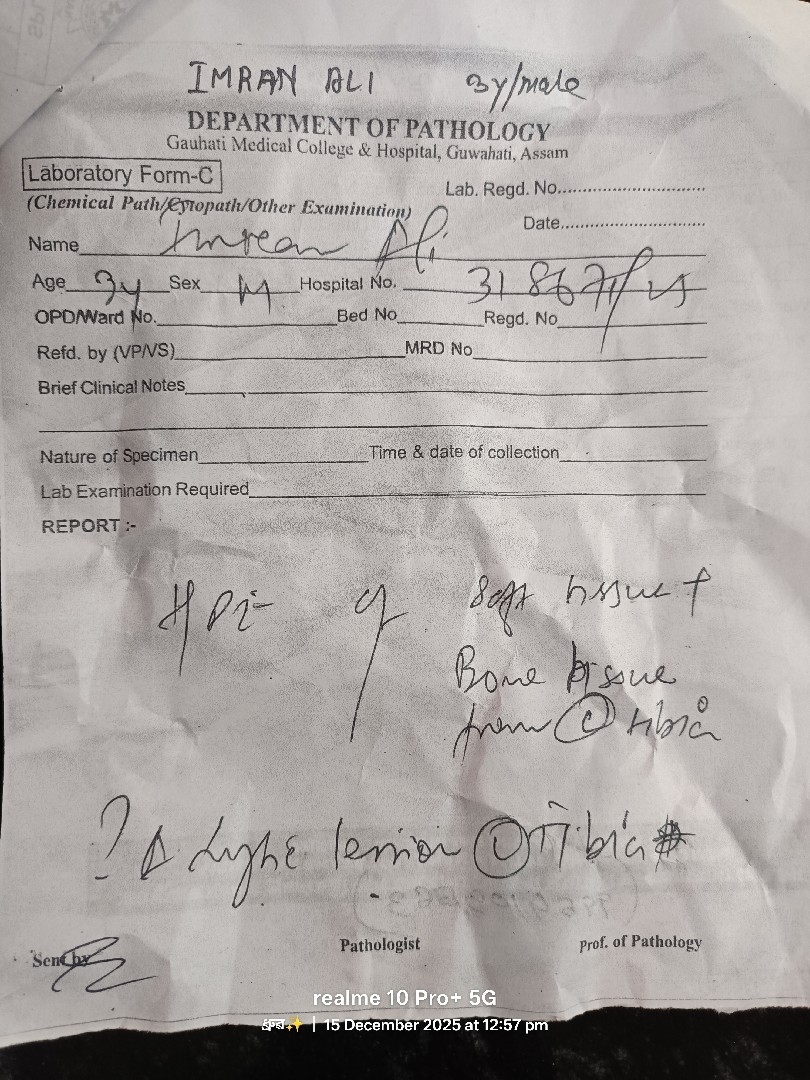 IMRAN ALI 3y/male
DEPARTMENT OF PATHOLOGY
Gauhati Medical College & Hospital, Guwahati, Assam
Laboratory Form-C
Lab. Regd. No.
(Chemical Path/Cytopath/Other Examination)
Date
Name Imran Ali
Age 3y Sex M Hospital No.
OPD/Ward No. Bed No Regd. No
Refd. by (VP/VS) MRD No
Brief Clinical Notes
Nature of Specimen Time & date of collection
Lab Examination Required
REPORT :-
soft tissue +
Bone tissue
from tibia
? Δ Lytic lesion Tibia
Pathologist Prof. of Pathology
Sent by
realme 10 Pro+ 5G
15 December 2025 at 12:57 pm